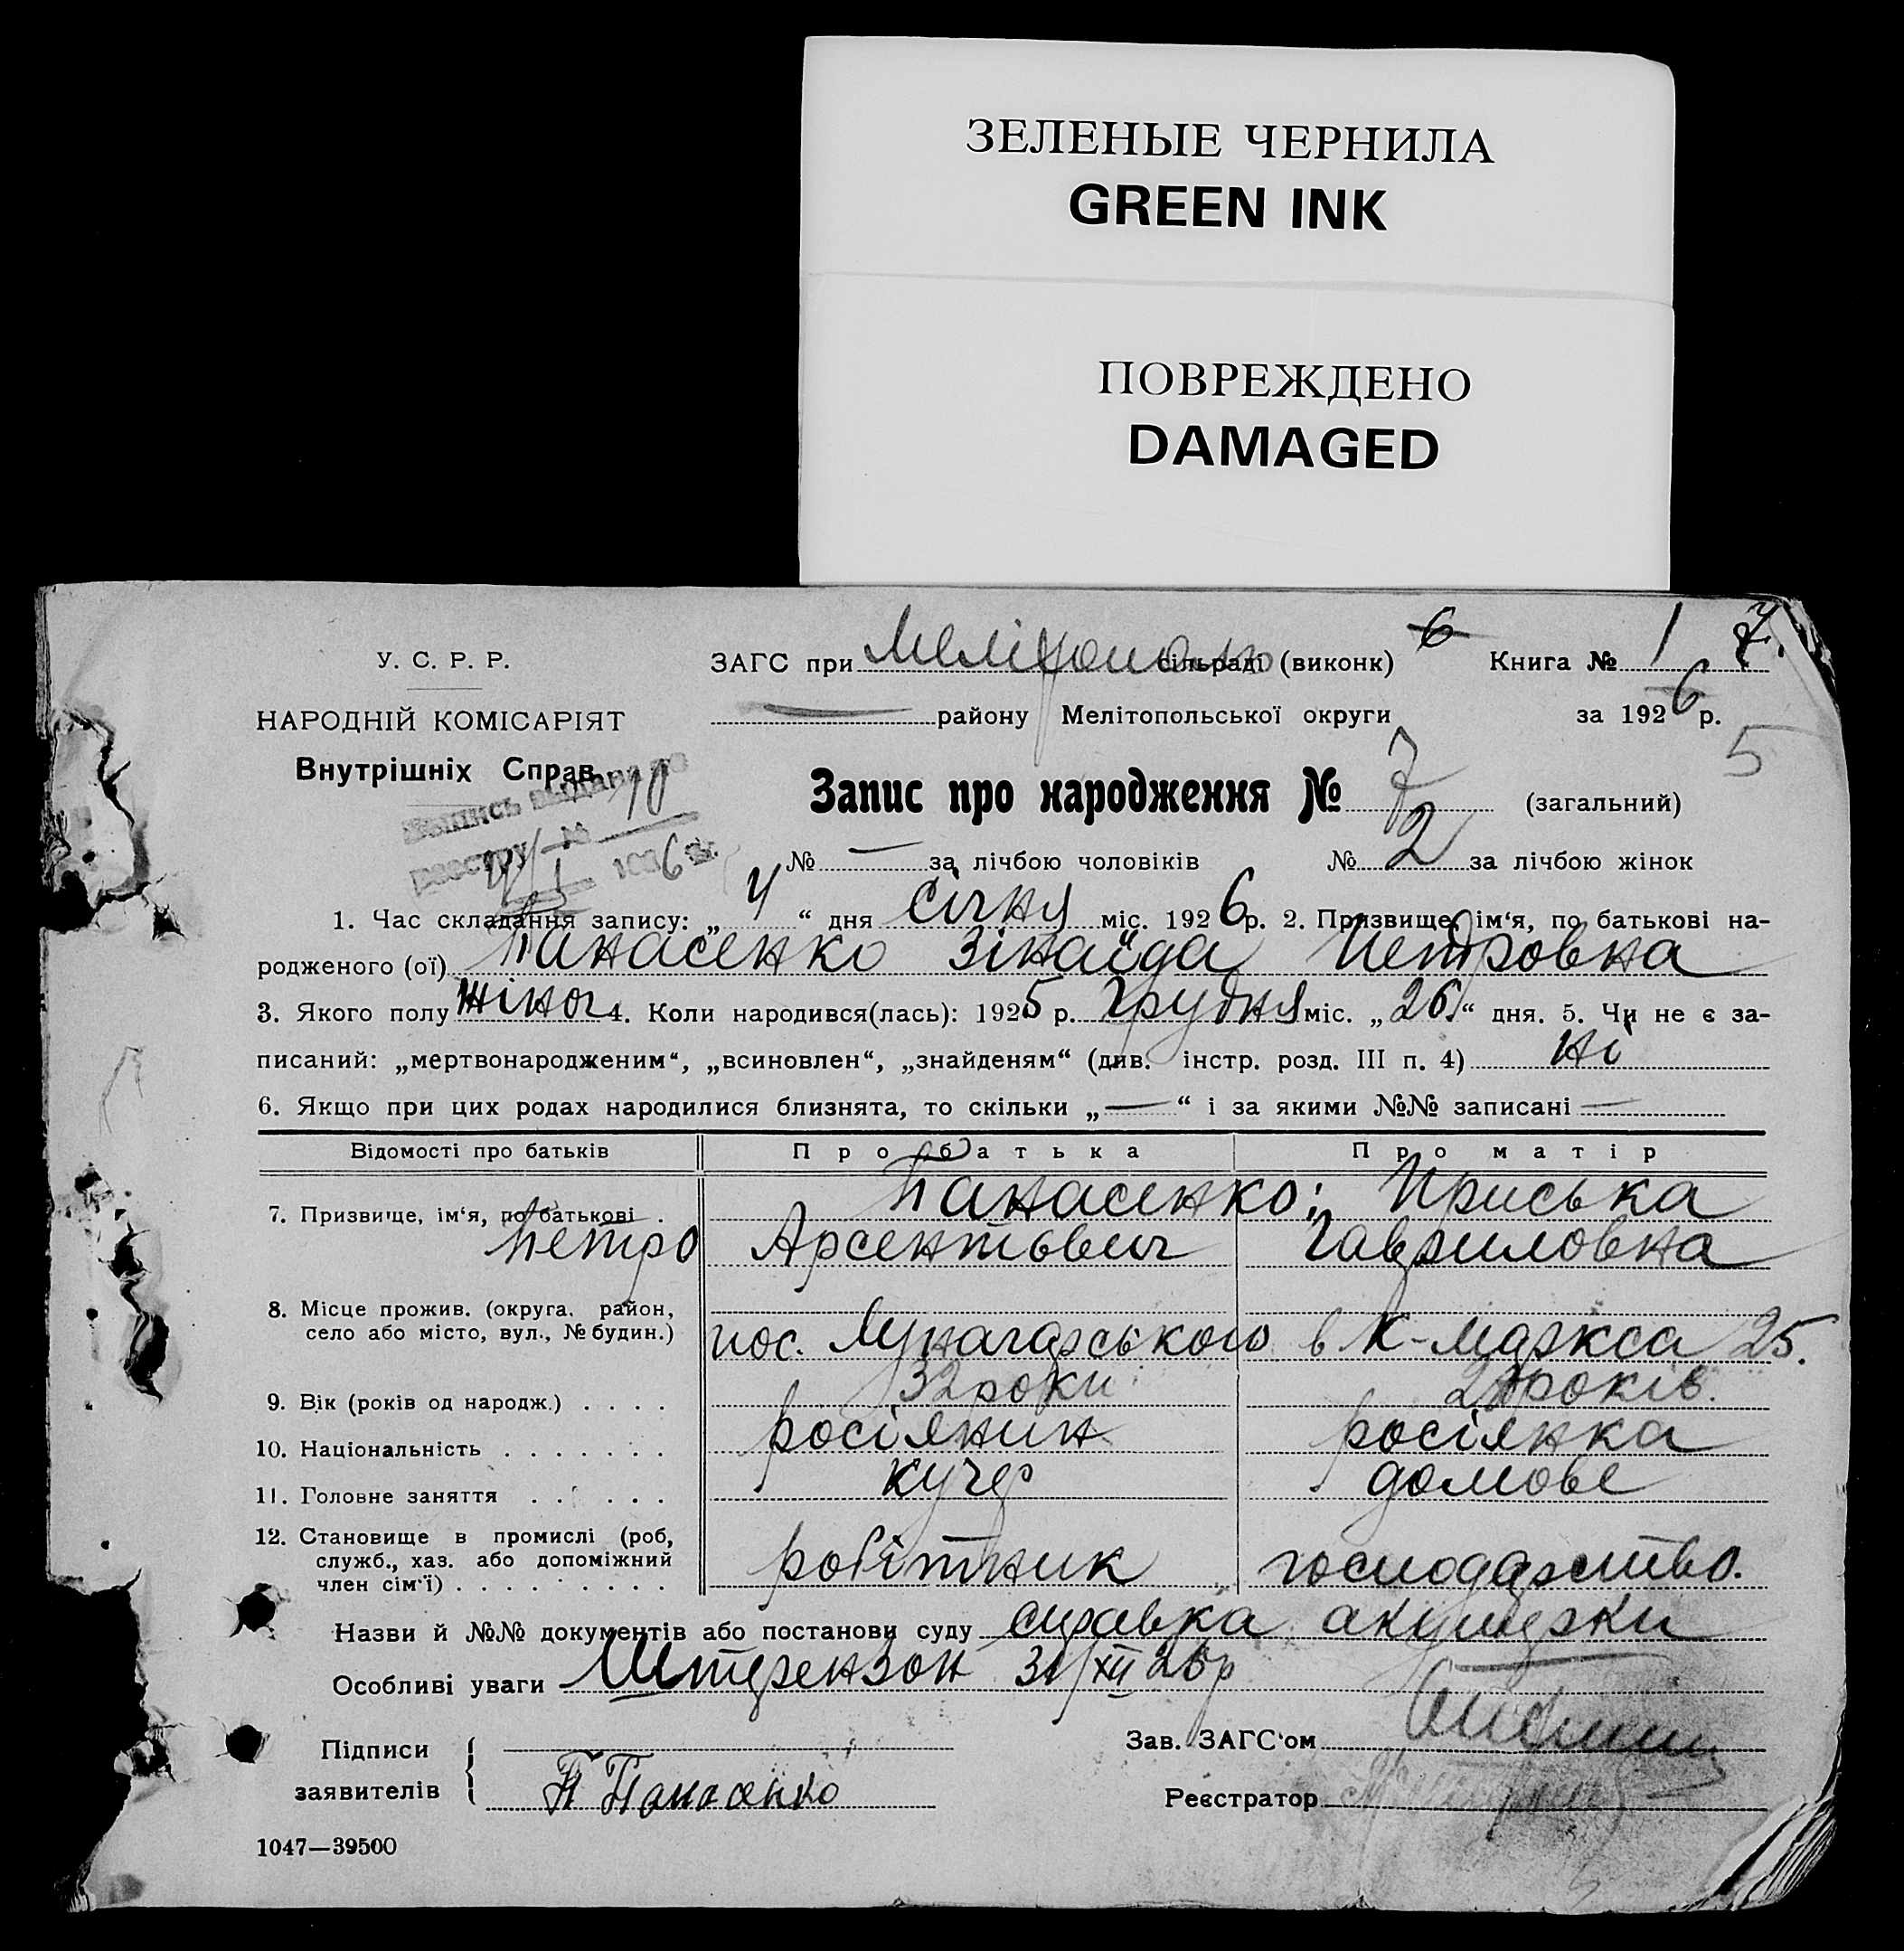 ЗЕЛЕНЫЕ ЧЕРНИЛА
GREEN INK
ПОВРЕЖДЕНО
DAMAGED
6
7.
У. С. Р. Р.
ЗАГС при сільраді (виконк) Книга № 1
НАРОДНІЙ КОМІСАРІЯТ
— району Мелітопольської округи за 1926 р.
5
Внутрішніх Справ
Запис про народження № 7 (загальний)
реестру № 10
№ — за лічбою чоловіків № 2 за лічбою жінок
1. Час складання запису: „ 4 “ дня Січня міс. 1926 р. 2. Призвище, ім‘я, по батькові на-
родженого (ої) Панасенко Зінаїда Петровна
3. Якого полу жіноч 4. Коли народився(лась): 1925 р. Грудня міс. „ 26 “ дня. 5. Чи не є за-
писаний: „мертвонародженим“, „всиновлен“, „знайденям“ (див. інстр. розд. III п. 4) ні
6. Якщо при цих родах народилися близнята, то скільки „ — “ і за якими №№ записані —
Відомості про батьків Про батька Про матір
7. Призвище, ім‘я, по батькові . Панасенко: Приська
Петро Арсентьвич Гавриловна
8. Місце прожив. (округа, район,
село або місто, вул., № будин.) пос. Луначарського в К-Маркса 25.
9. Вік (років од народж.) . . . . 32 роки років.
10. Національність . . . . . . . росіянин росіянка
11. Головне заняття . . . . . . кучер домове
12. Становище в промислі (роб,
служб., хаз. або допоміжний
член сім‘ї) . . . . . . . . . робітник господарство.
Назви й №№ документів або постанови суду справка акушерки
Особливі уваги Штерензон 31/XII 26р
Підписи
заявителів
Зав. ЗАГС‘ом
П Панасенко
Реєстратор
1047—39500